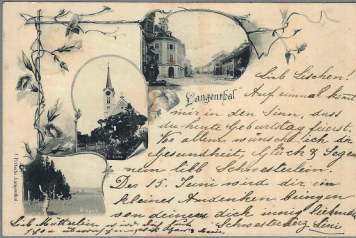 Langenthal
Lieb Lieschen!
Auf einmal kommt
mir in den Sinn, dass
du heute Geburtstag feierst.
Vor allem wünsch ich dir
Gesundheit, Glück & Segen
mein lieb Schwesterlein.
Der 15. Juni wird dir ein
kleines Andenken bringen
von deinem dich innig liebenden
Schwesterherz Lini
Lieb Mütterlein wird